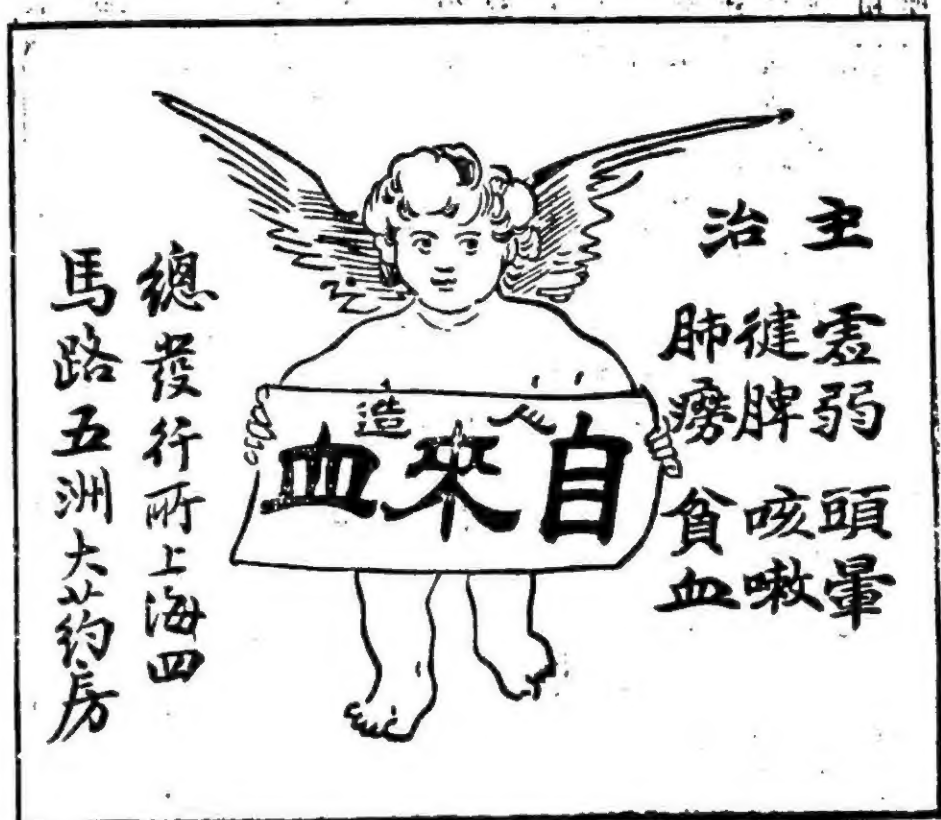 主治
虛弱 頭暈
徤脾 咳嗽
肺癆 貧血
人造
自來血
總發行所上海四
馬路五洲大葯房